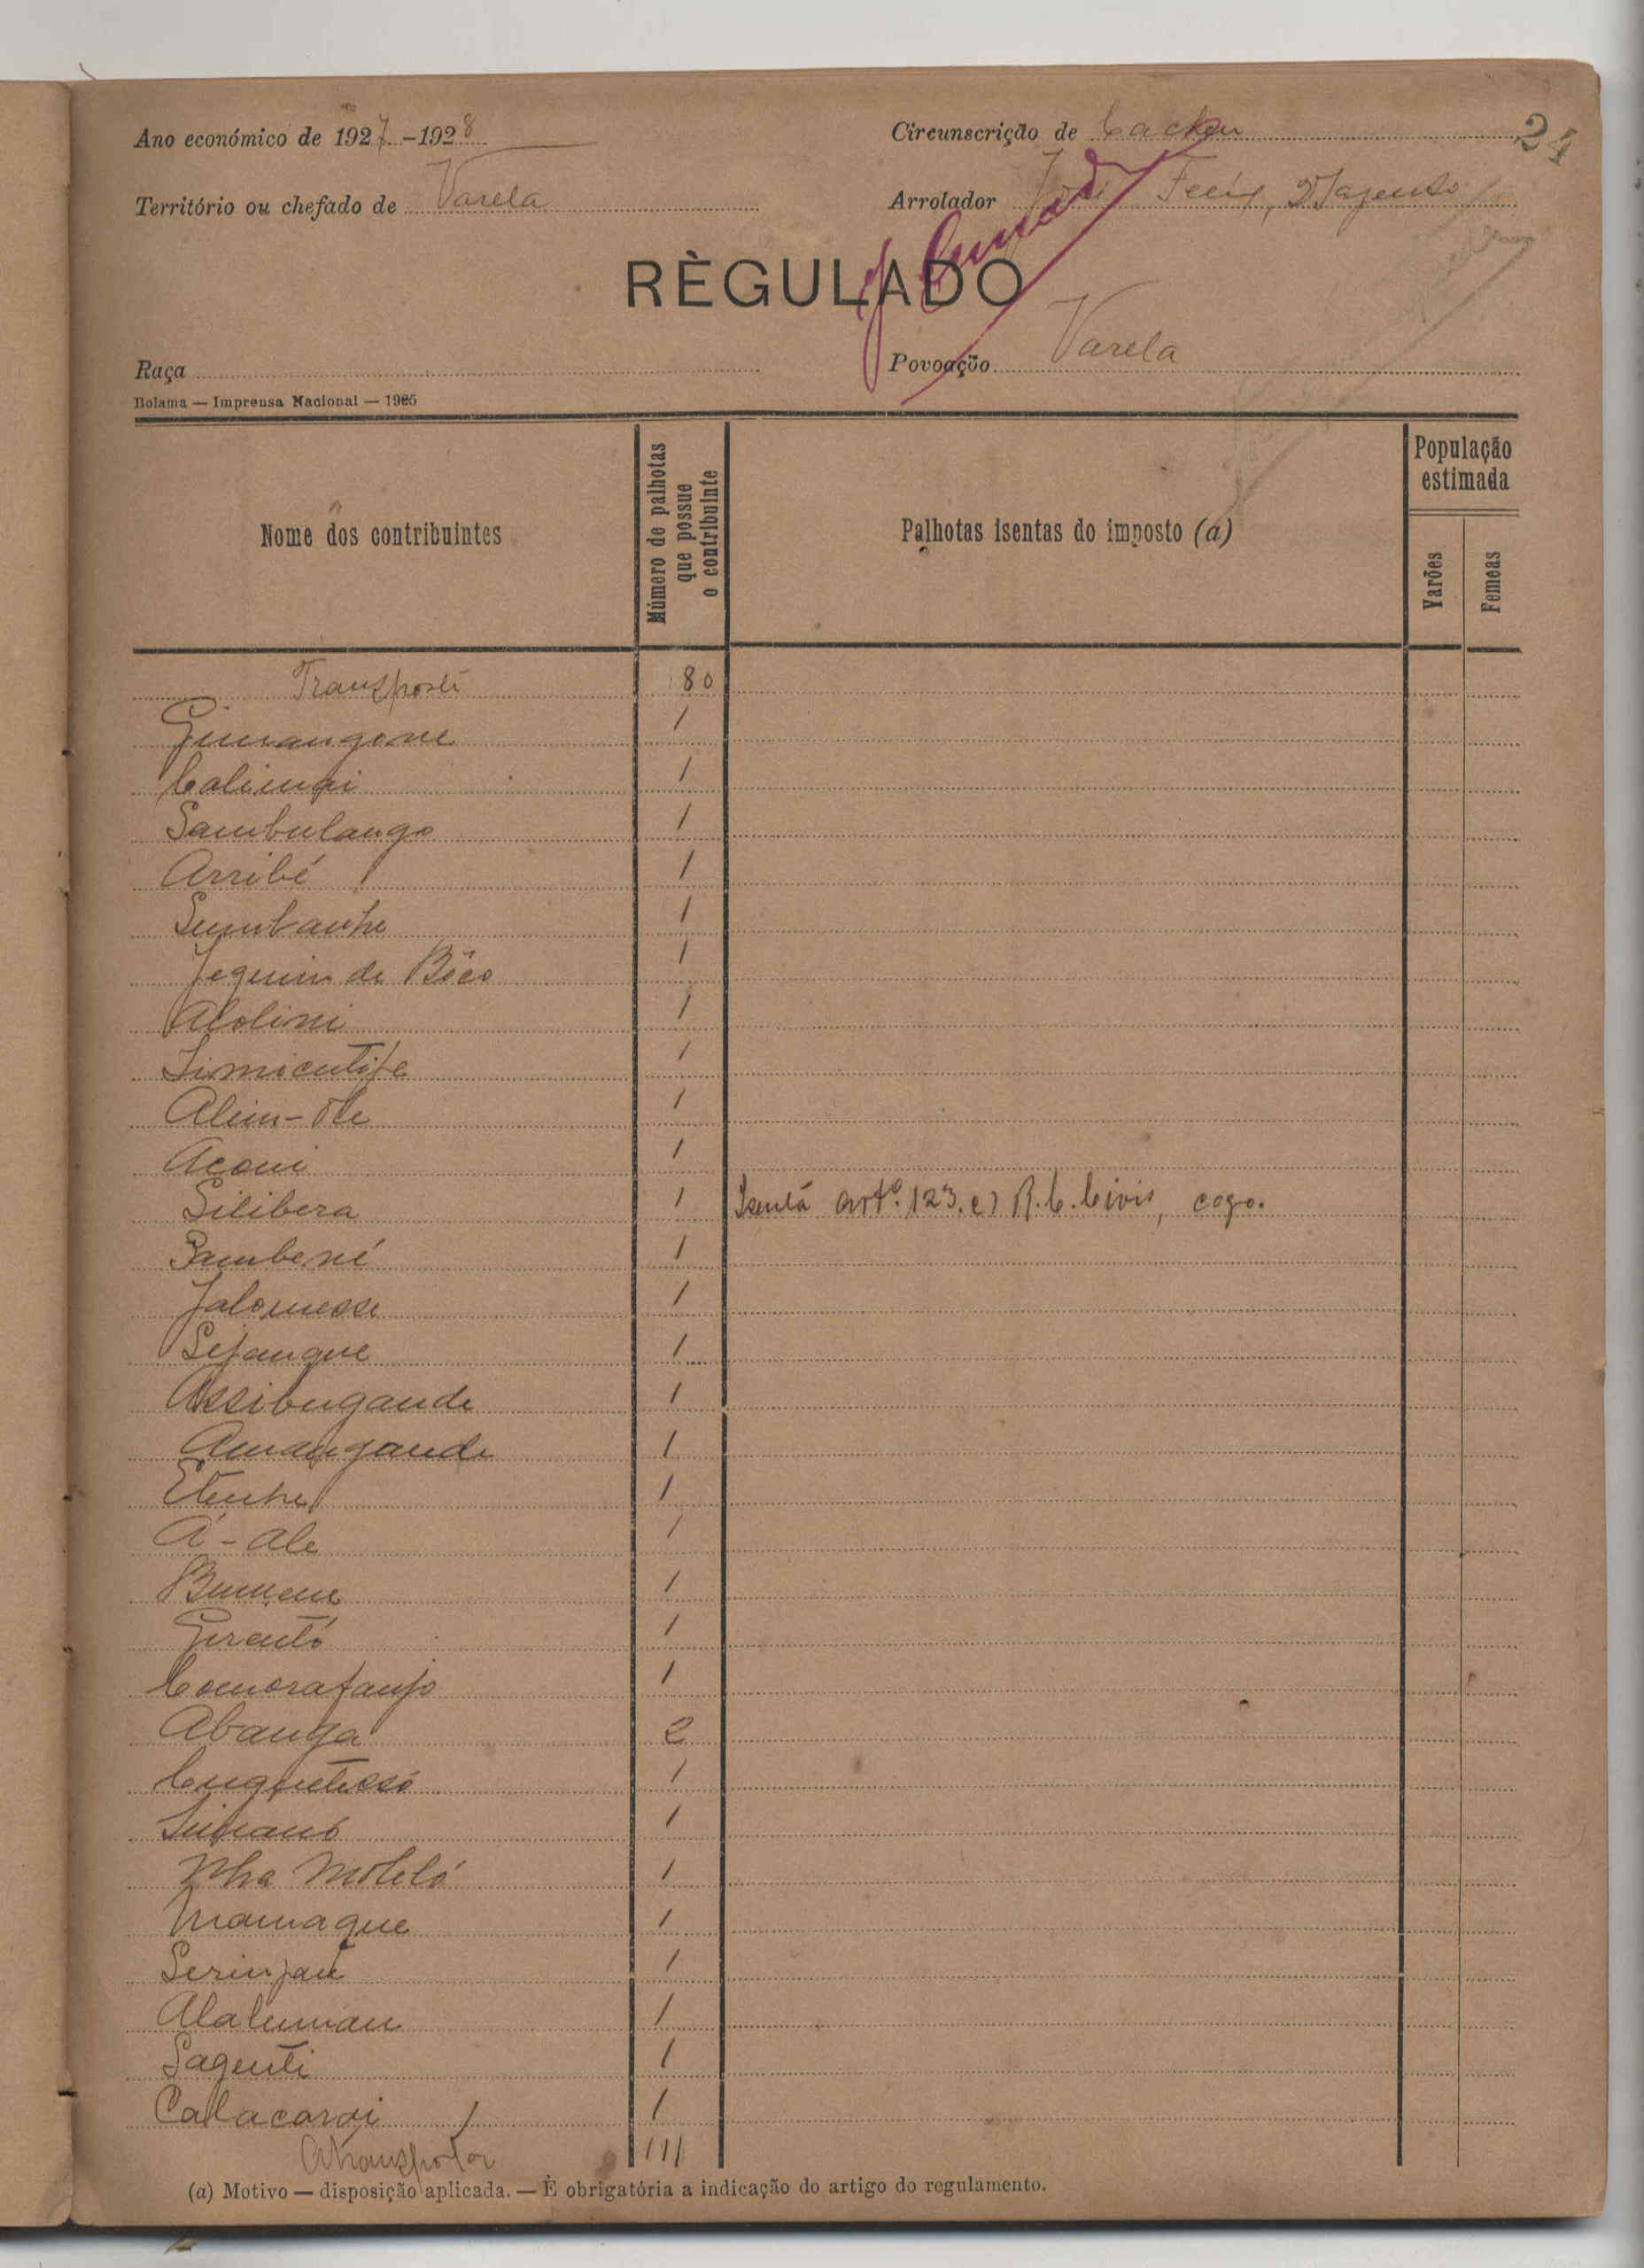 Ano económico de 1927-1928
Circunscrição de Cacheu
24
Território ou chefado de Varela
Arrolador José Felix, 2º
RÈGULADO
Raça
Povoação Varela
Bolama — Imprensa Nacional — 1925
Nome dos contribuintes
Número de palhotas que possue o contribuinte
Palhotas isentas do imposto (a)
População estimada
Varões
Femeas
Transporte 80
1
Calimai 1
Sambulango 1
Arribé 1
Sumbanhe 1
Jequin de Bôco 1
Alolini 1
1
Alim-Ole 1
Aconi 1
Silibera 1 Isenta artº. 123. e) R. C. Civis, cego.
Sambené 1
Jalomesse 1
Sejanque 1
Assibugande 1
Amangande 1
Etenhe 1
A-ale 1
Bumene 1
1
1
Abanga 2
1
1
Nha Moleló 1
Mamaque 1
Serinjau 1
Alaluman 1
Sagenti 1
Callacarai 1
A transportar 111
(a) Motivo — disposição aplicada. — È obrigatória a indicação do artigo do regulamento.